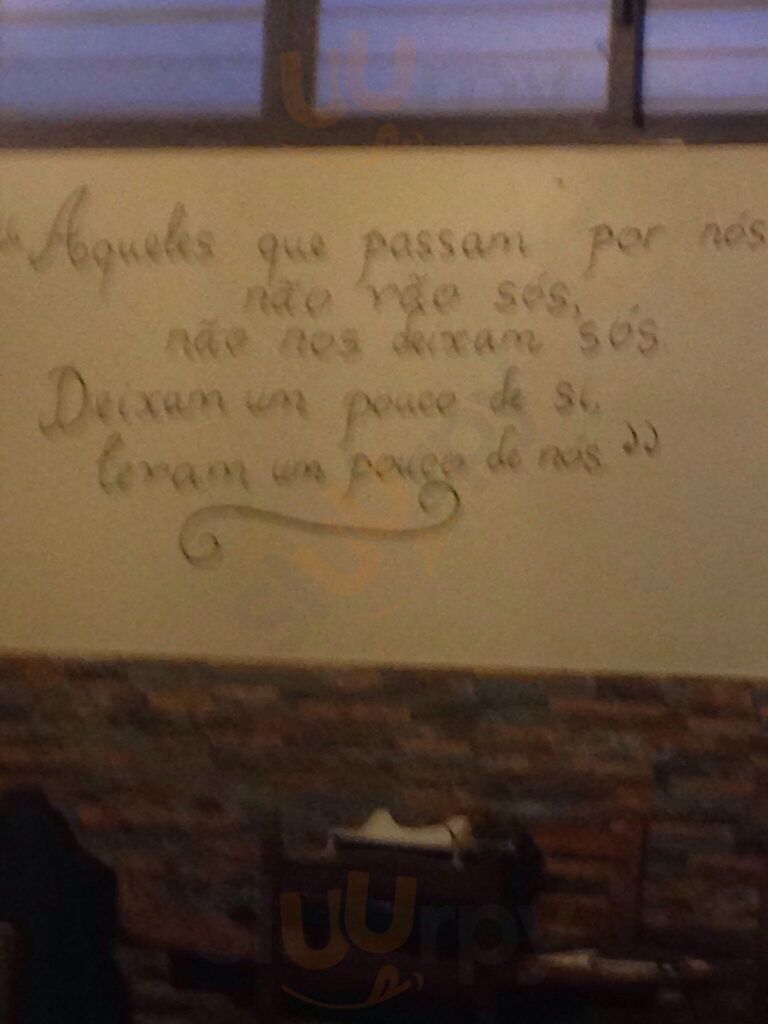 "Aqueles que passam por nós
não vão sós,
não nos deixam sós.
Deixam um pouco de si,
levam um pouco de nós"
sluurpy
sluurpy
sluurpy